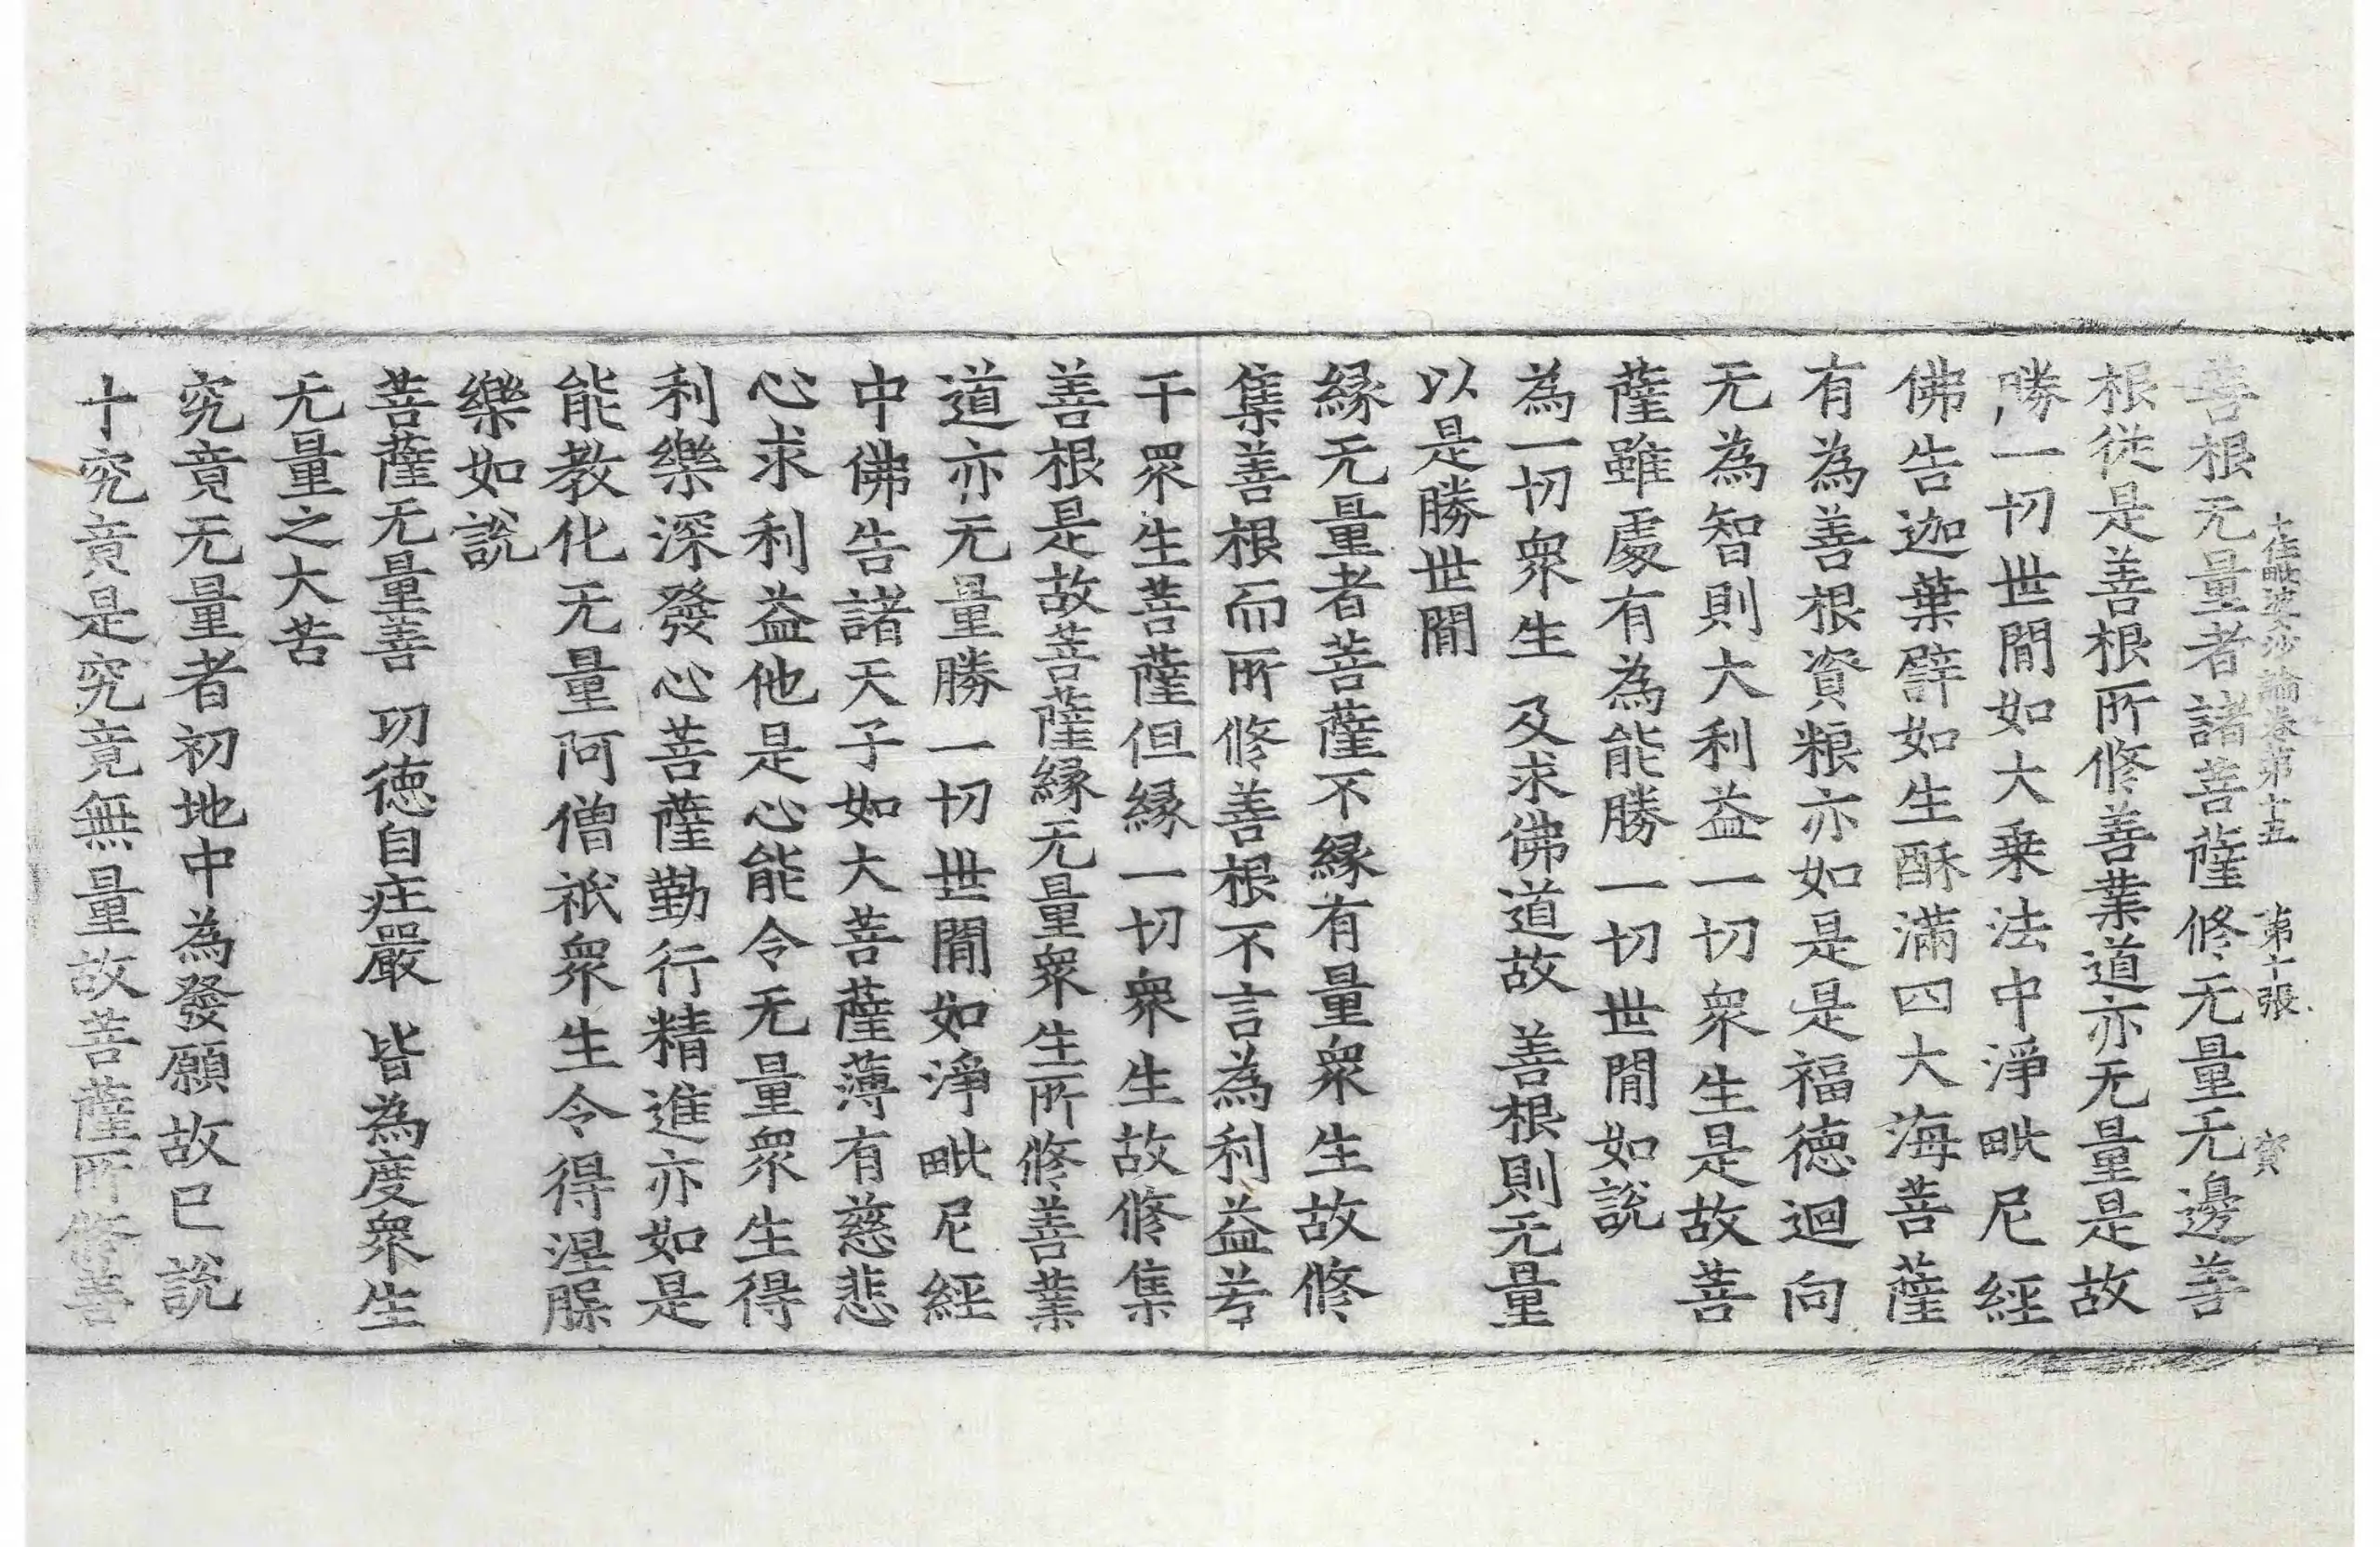 十住毗婆沙論卷第十五 第十張 寶
善根无量者諸菩薩修无量无邊善
根從是善根所修善業道亦无量是故
勝一切世閒如大乗法中淨毗尼經
佛告迦葉譬如生酥滿四大海菩薩
有為善根資粮亦如是是福德迴向
无為智則大利益一切衆生是故菩
薩雖處有為能勝一切世閒如說
為一切衆生 及求佛道故 善根則无量
以是勝世閒
縁无量者菩薩不縁有量衆生故修
集善根而所修善根不言為利益若
干衆生菩薩但縁一切衆生故修集
善根是故菩薩縁无量衆生所修善業
道亦无量勝一切世閒如淨毗尼經
中佛告諸天子如大菩薩薄有慈悲
心求利益他是心能令无量衆生得
利樂深發心菩薩勤行精進亦如是
能教化无量阿僧祇衆生令得涅槃
樂如說
菩薩无量善 功德自庄嚴 皆為度衆生
无量之大苦
究竟无量者初地中為發願故巳說
十究竟是究竟無量故菩薩所修善